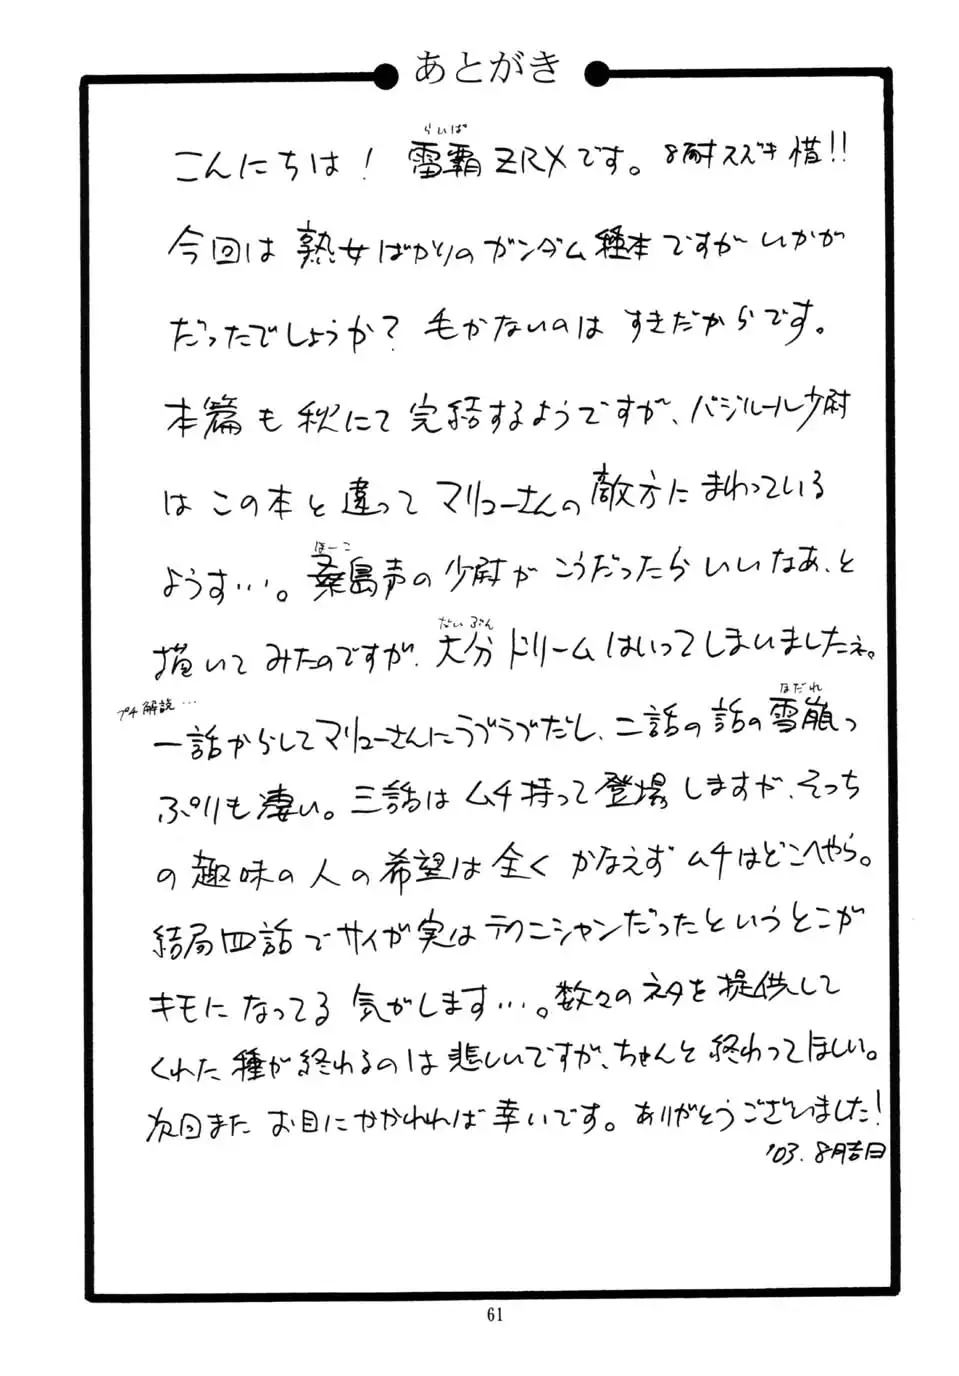 あとがき
らいば
こんにちは! 雷覇ZRXです。8耐スズキ惜!!
今回は熟女ばかりのガンダム種本ですがいかが
だったでしょうか? 毛がないのはすきだからです。
本篇も秋にて完結するようですが、バジルール少尉
はこの本と違ってマリューさんの敵方にまわっている
ほーこ
ようす…。桑島声の少尉がこうだったらいいなあ、と
だいぶん
描いてみたのですが、大分ドリームはいってしまいましたネ。
プチ解説…
なだれ
一話からしてマリューさんにラブラブだし、二話の話の雪崩っ
ぷりも凄い。三話はムチ持って登場しますが、そっち
の趣味の人の希望は全くかなえずムチはどこへやら。
結局四話でサイが実はテクニシャンだったというとこが
キモになってる気がします…。数々のネタを提供して
くれた種が終わるのは悲しいですが、ちゃんと終わってほしい。
次回またお目にかかわれれば幸いです。ありがとうございました!
'03.8月吉日
61